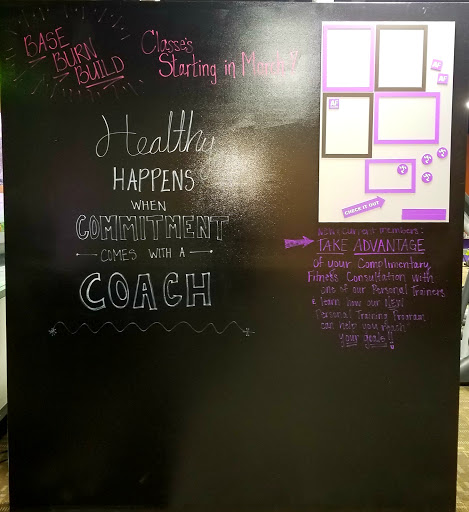 BASE
BURN
BUILD
Classes
Starting in March!
Healthy
HAPPENS
WHEN
COMMITMENT
COMES WITH A
COACH
AF
AF
CHECK IT OUT
New & Current members:
TAKE ADVANTAGE
of your Complimentary
Fitness Consultation with
one of our Personal Trainers
& learn how our NEW
Personal Training Program
can help you reach
your goals!!